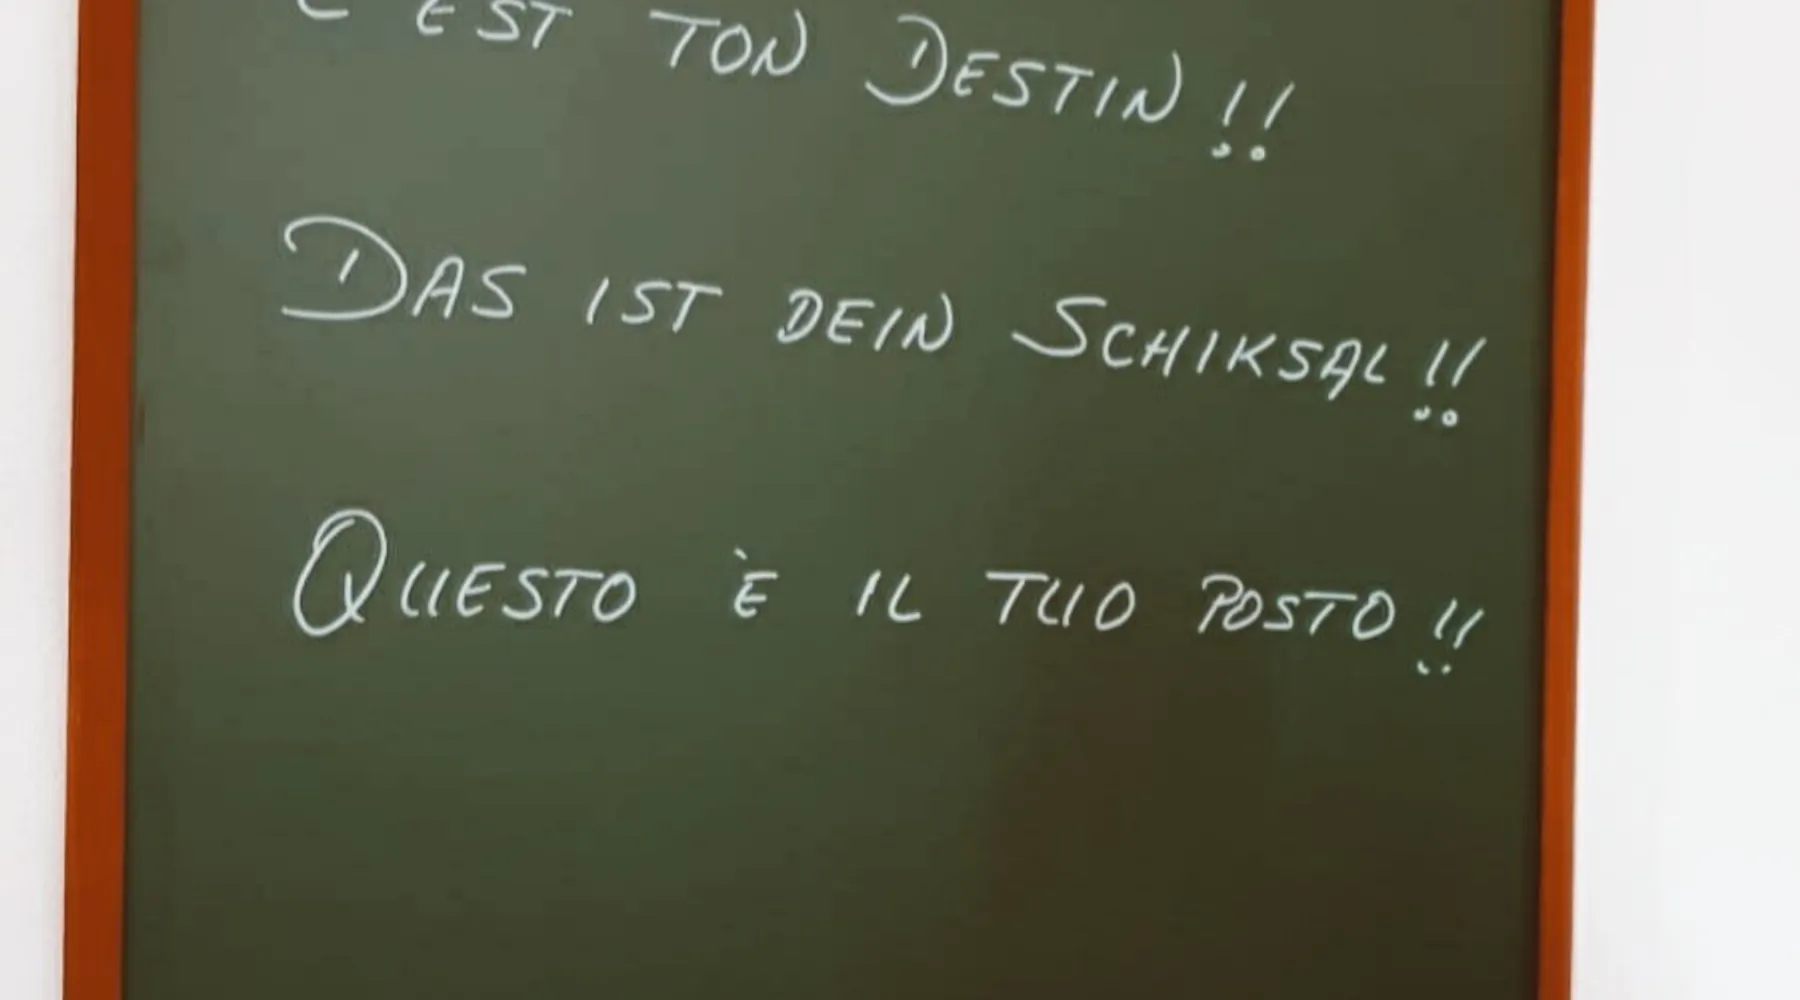 C'EST TON DESTIN!!
DAS IST DEIN SCHIKSAL!!
QUESTO È IL TUO POSTO!!